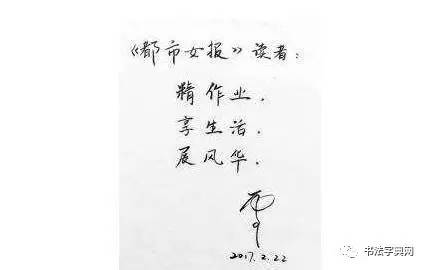 《都市女报》读者：
精作业.
享生活.
展风华.
2017.2.22
书法字典网